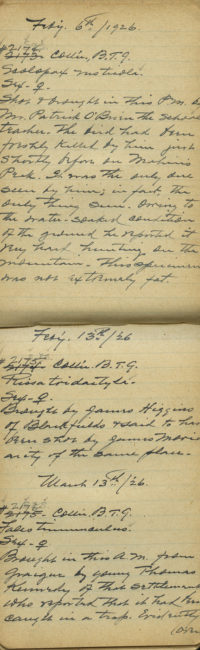 Feby. 6th/1926.
Collin, B.T.G.
Scolopax rusticola.
Sex. ♀.
Shot & brought in this P.M. by
Mr. Patrick O'Brien the School
Teacher. The bird had been
freshly killed by him just
shortly before on
Peak. It was the only one
seen by him; in fact, the
only thing seen. Owing to
the water-soaked condition
of the ground he reported it
very hard hunting on the
mountain. This specimen
was not extremely fat.
Feby. 13th/26
Collin. B.T.G.
Rissa tridactyla.
Sex-♀
Brought by James Higgins
of Blackfields & said to have
been shot by James
of the same place.
March 13th/26.
Collin. B.T.G.
Falco tinnunculus.
Sex-♀
Brought in this A.M. from
by young Thomas
Kennedy of that settlement
who reported that it had been
caught in a trap. Evidently
(over